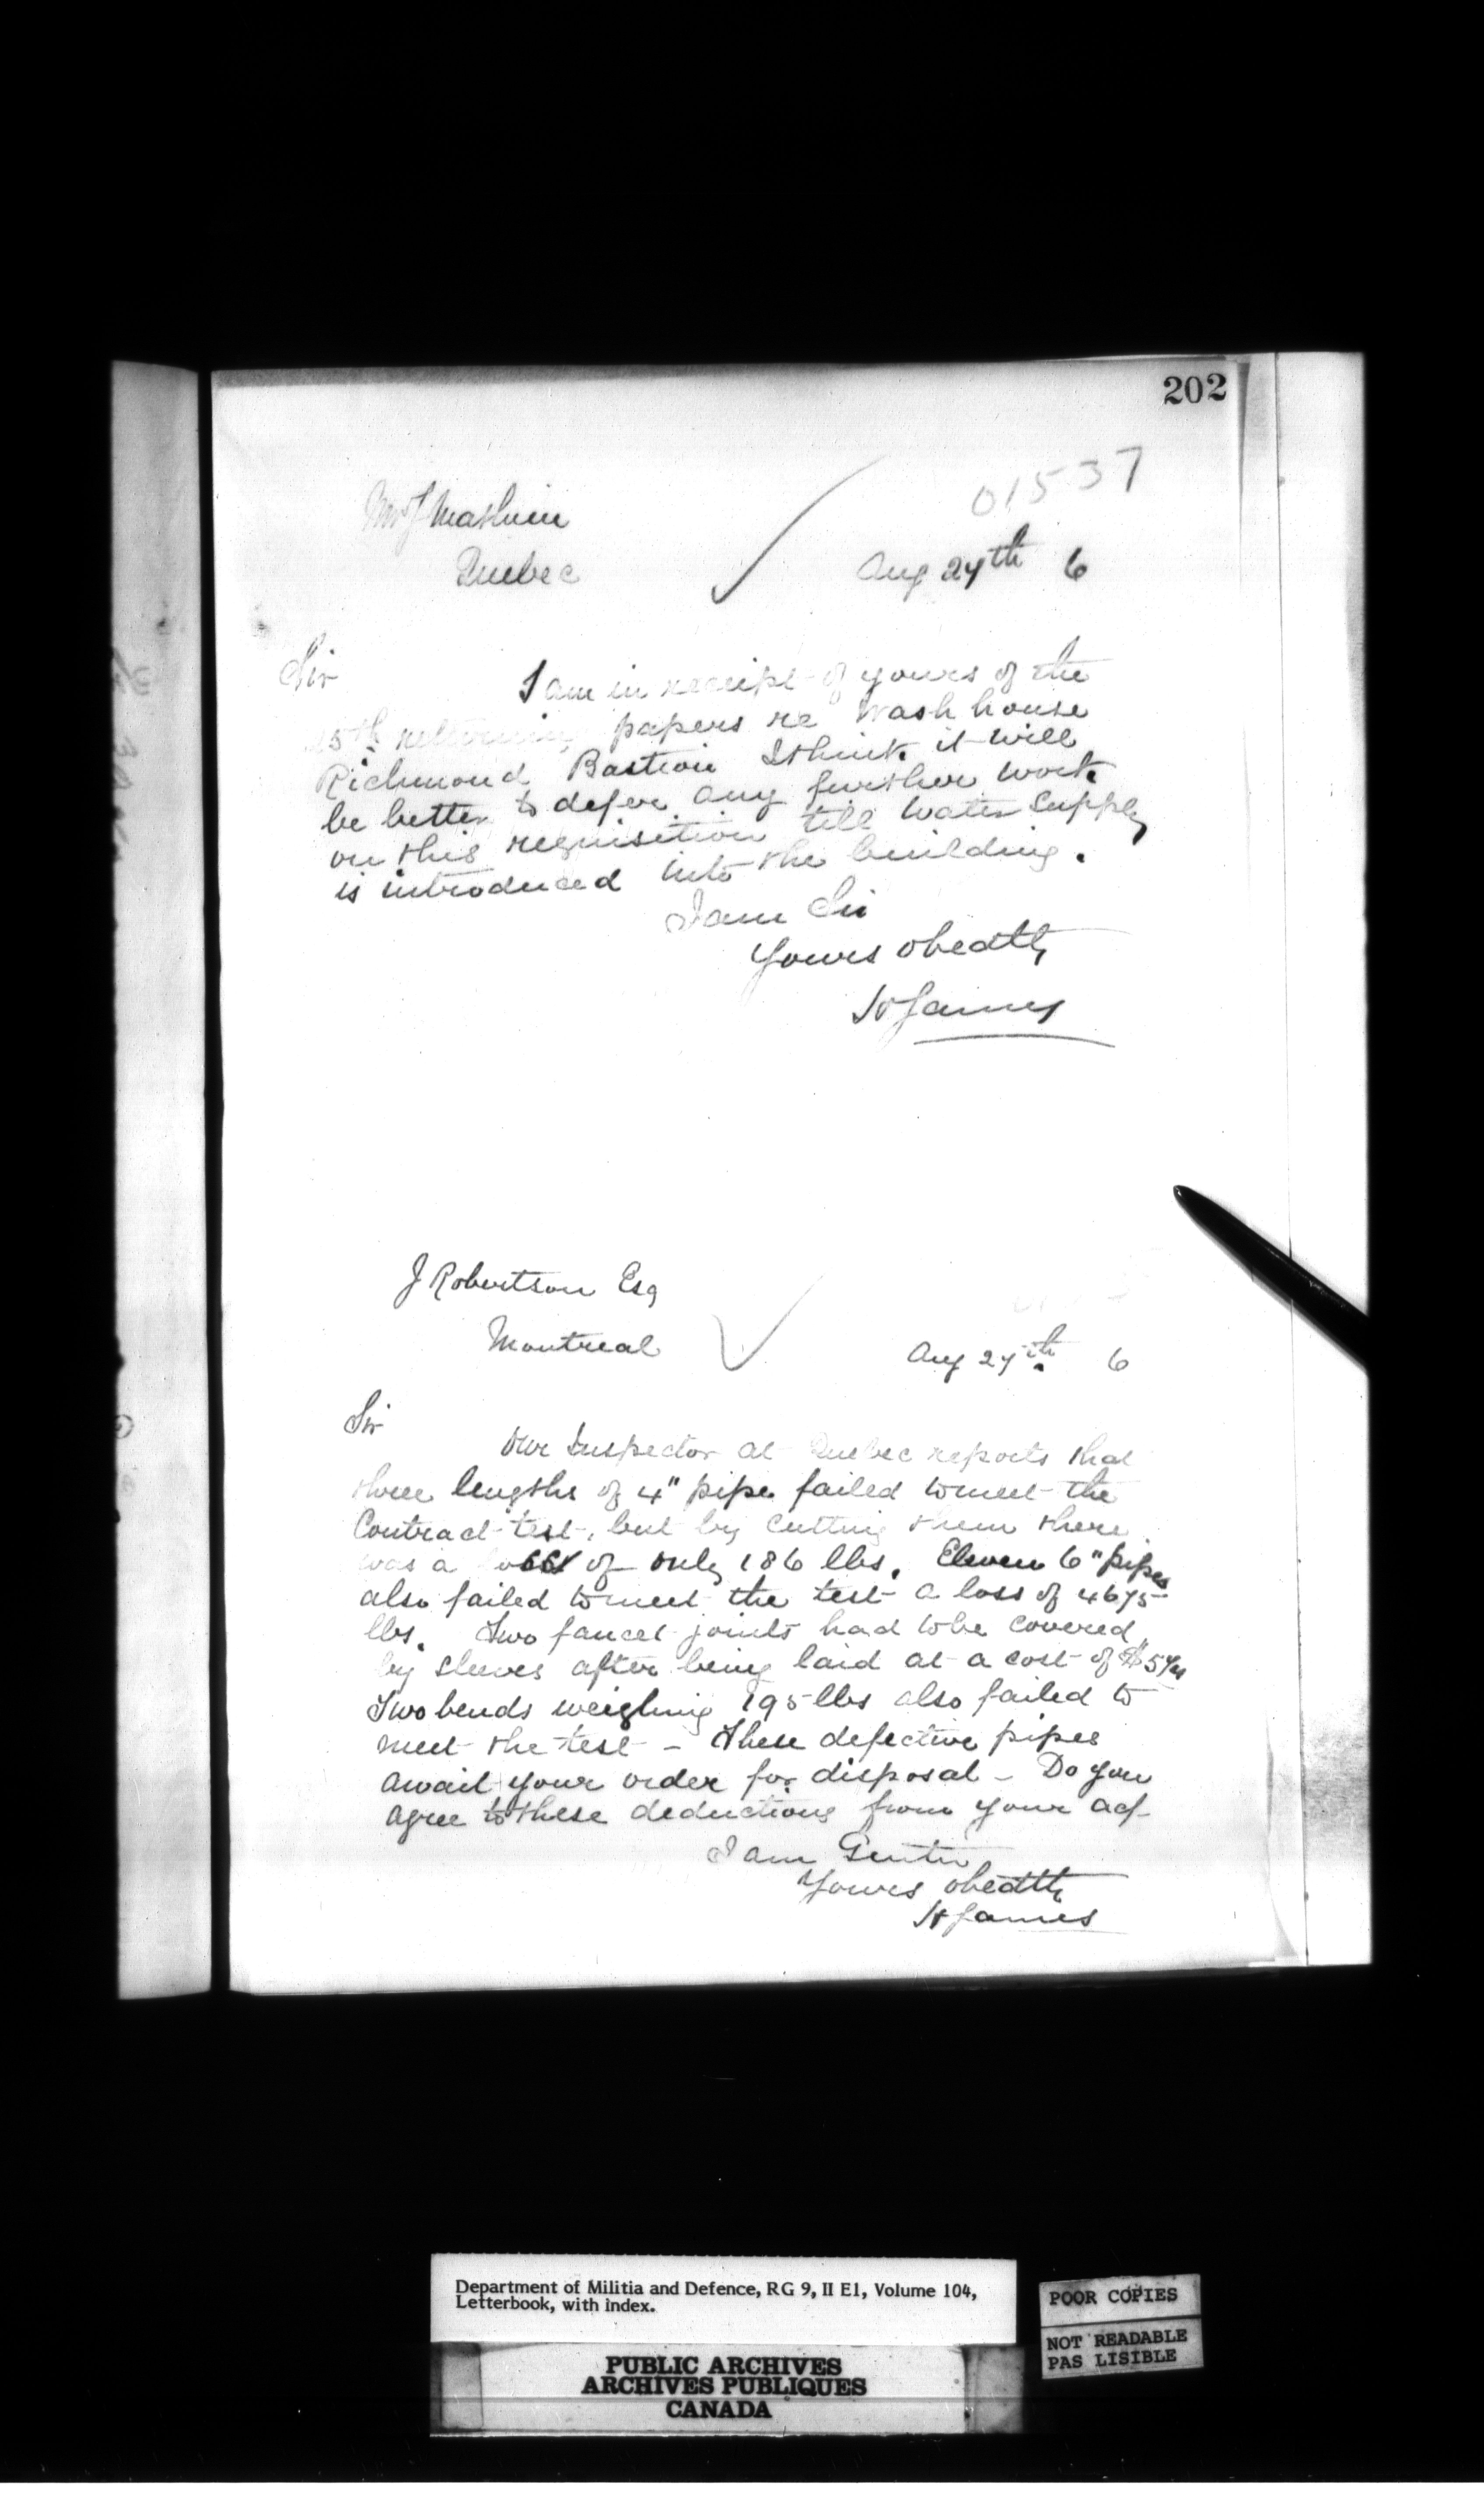 202
01537
Quebec
Aug 27th 6
Sir
I am in receipt of yours of the
25th returning papers re Wash house
Richmond Bastion I think it will
be better to defer any further work
on this requisition till Water Supply
is introduced into the building.
I am Sir
Yours obedtly
H James
J Robertson Esq
Montreal
Aug 27th 6
Sir
Our Inspector at Quebec reports that
three lengths of 4" pipe failed to meet the
Contract test, but by cutting them there
was a loss of only 186 lbs. Eleven 6" pipes
also failed to meet the test a loss of 4675
lbs. Two faucet joints had to be covered
by sleeves after being laid at a cost of
Two bends weighing 195 lbs also failed to
meet the test – These defective pipes
await your order for disposal – Do you
agree to these deductions from your acf
I am Gentn
Yours obedtly
H James
Department of Militia and Defence, RG 9, II E1, Volume 104,
Letterbook, with index.
POOR COPIES
NOT READABLE
PAS LISIBLE
PUBLIC ARCHIVES
ARCHIVES PUBLIQUES
CANADA